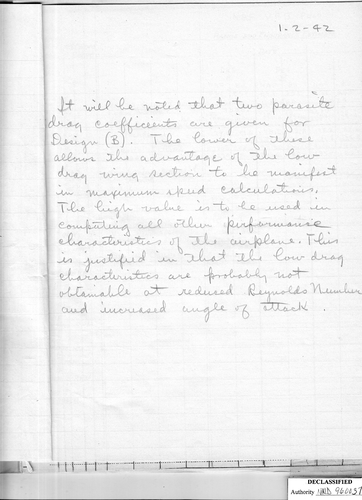 1-2-42
It will be noted that two parasite
drag coefficients are given for
Design (B). The lower of these
allows the advantage of the low
drag wing section to be manifest
in maximum speed calculations.
The high value is to be used in
computing all other performance
characteristics of the airplane. This
is justified in that the low drag
characteristics are probably not
obtainable at reduced Reynolds Number
and increased angle of attack.
DECLASSIFIED
Authority